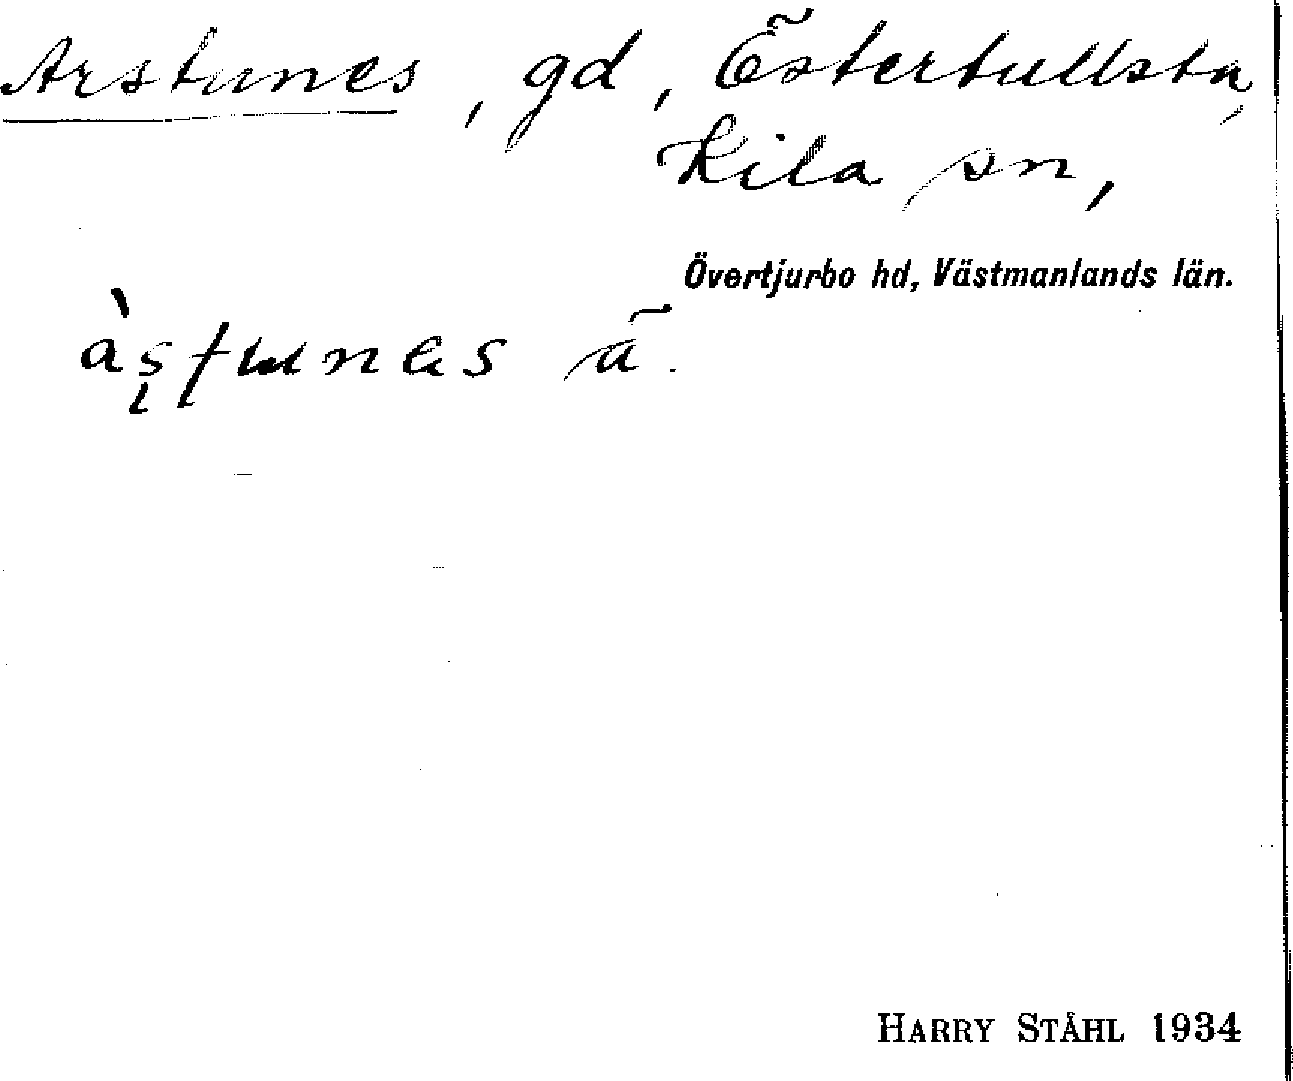 Arstunes, gd, Östertullsta,
Kila sn,
Övertjurbo hd, Västmanlands län.
àstunɘs ä.
HARRY STÅHL 1934